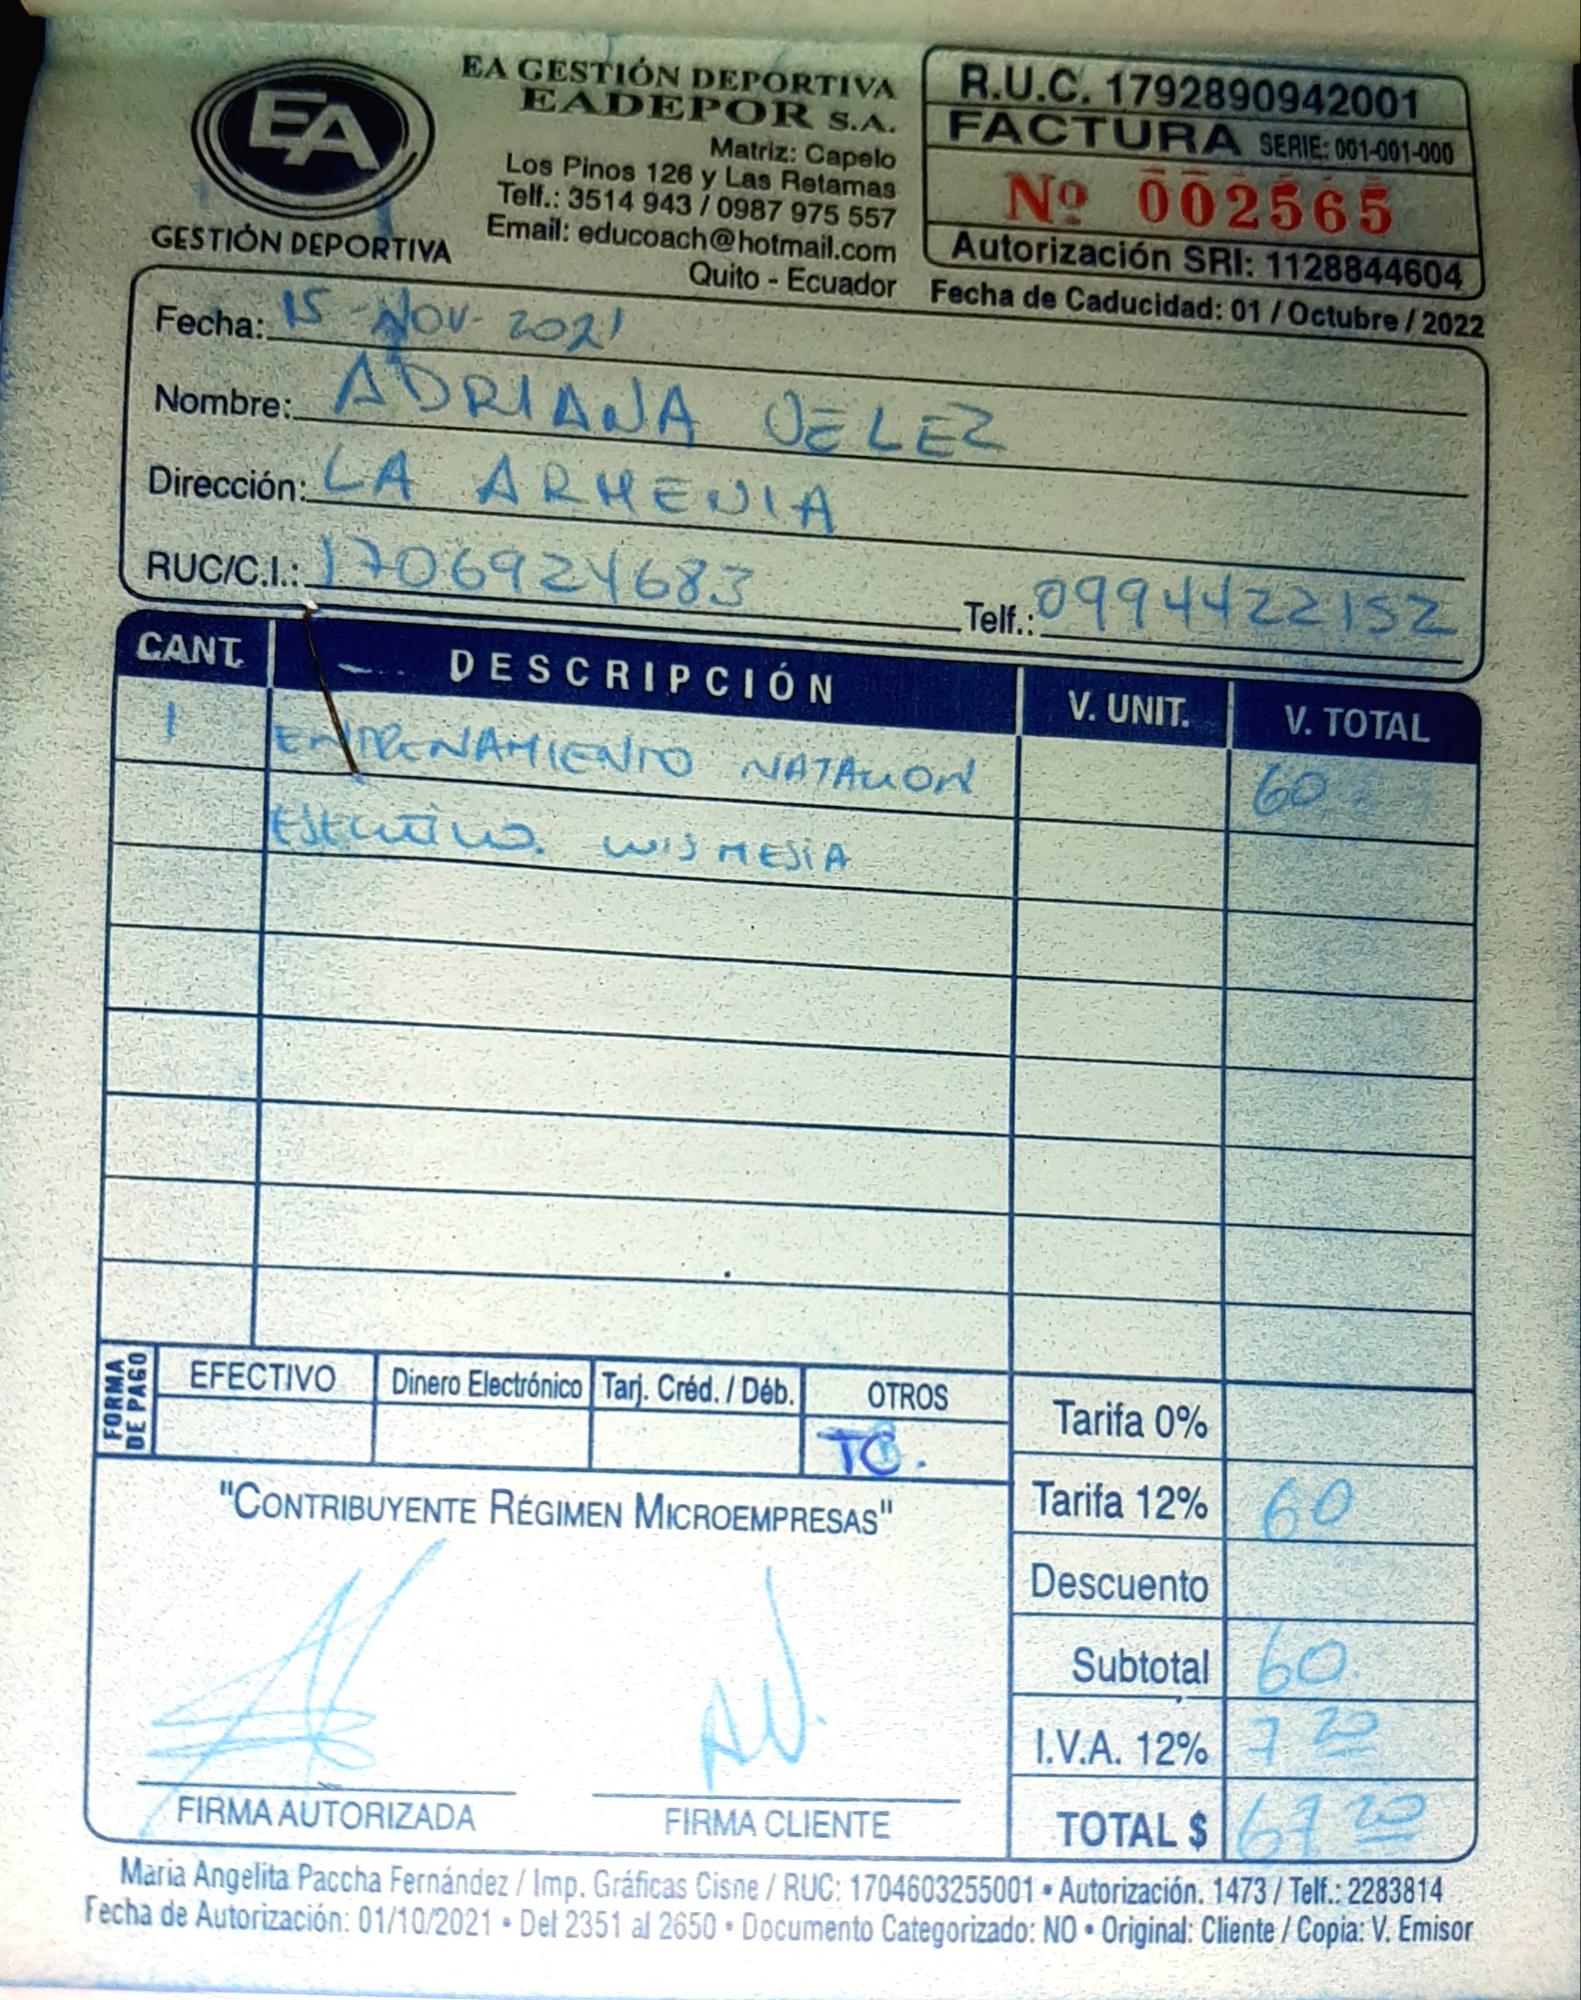 EA
GESTIÓN DEPORTIVA
EA GESTIÓN DEPORTIVA
EADEPOR S.A.
Matriz: Capelo
Los Pinos 126 y Las Retamas
Telf.: 3514 943 / 0987 975 557
Email: educoach@hotmail.com
Quito - Ecuador
R.U.C. 1792890942001
FACTURA SERIE: 001-001-000
Nº 002565
Autorización SRI: 1128844604
Fecha de Caducidad: 01 / Octubre / 2022
Fecha: 15-NOV-2021
Nombre: ADRIANA VELEZ
Dirección: LA ARMENIA
RUC/C.I.: 1706924683 Telf.: 0994422152
CANT. DESCRIPCIÓN V. UNIT. V. TOTAL
1 ENTRENAMIENTO NATACION 60
EJECUTIVO. LUIS MEJIA
FORMA DE PAGO
EFECTIVO Dinero Electrónico Tarj. Créd. / Déb. OTROS
TC.
Tarifa 0%
Tarifa 12% 60
Descuento
Subtotal 60
I.V.A. 12% 7 20
TOTAL $ 67 20
"CONTRIBUYENTE RÉGIMEN MICROEMPRESAS"
AV.
FIRMA AUTORIZADA FIRMA CLIENTE
María Angelita Paccha Fernández / Imp. Gráficas Cisne / RUC: 1704603255001 • Autorización. 1473 / Telf.: 2283814
Fecha de Autorización: 01/10/2021 • Del 2351 al 2650 • Documento Categorizado: NO • Original: Cliente / Copia: V. Emisor